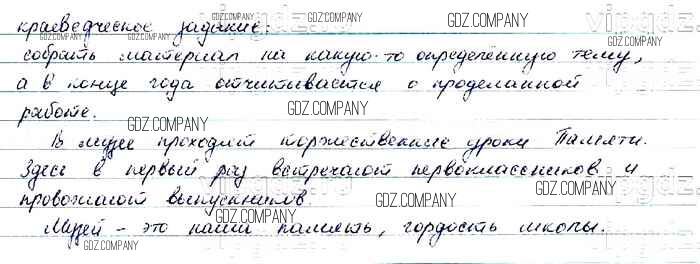 краеведческое задание:
собрать материал на какую-то определённую тему,
а в конце года отчитывается о проделанной
работе.
В музее проходят торжественные уроки Памяти.
Здесь в первый раз встречают первоклассников и
провожают выпускников.
Музей - это наша память, гордость школы.
GDZ.COMPANY
GDZ.COMPANY
GDZ.COMPANY
GDZ.COMPANY
GDZ.COMPANY
GDZ.COMPANY
GDZ.COMPANY
GDZ.COMPANY
GDZ.COMPANY
GDZ.COMPANY
GDZ.COMPANY